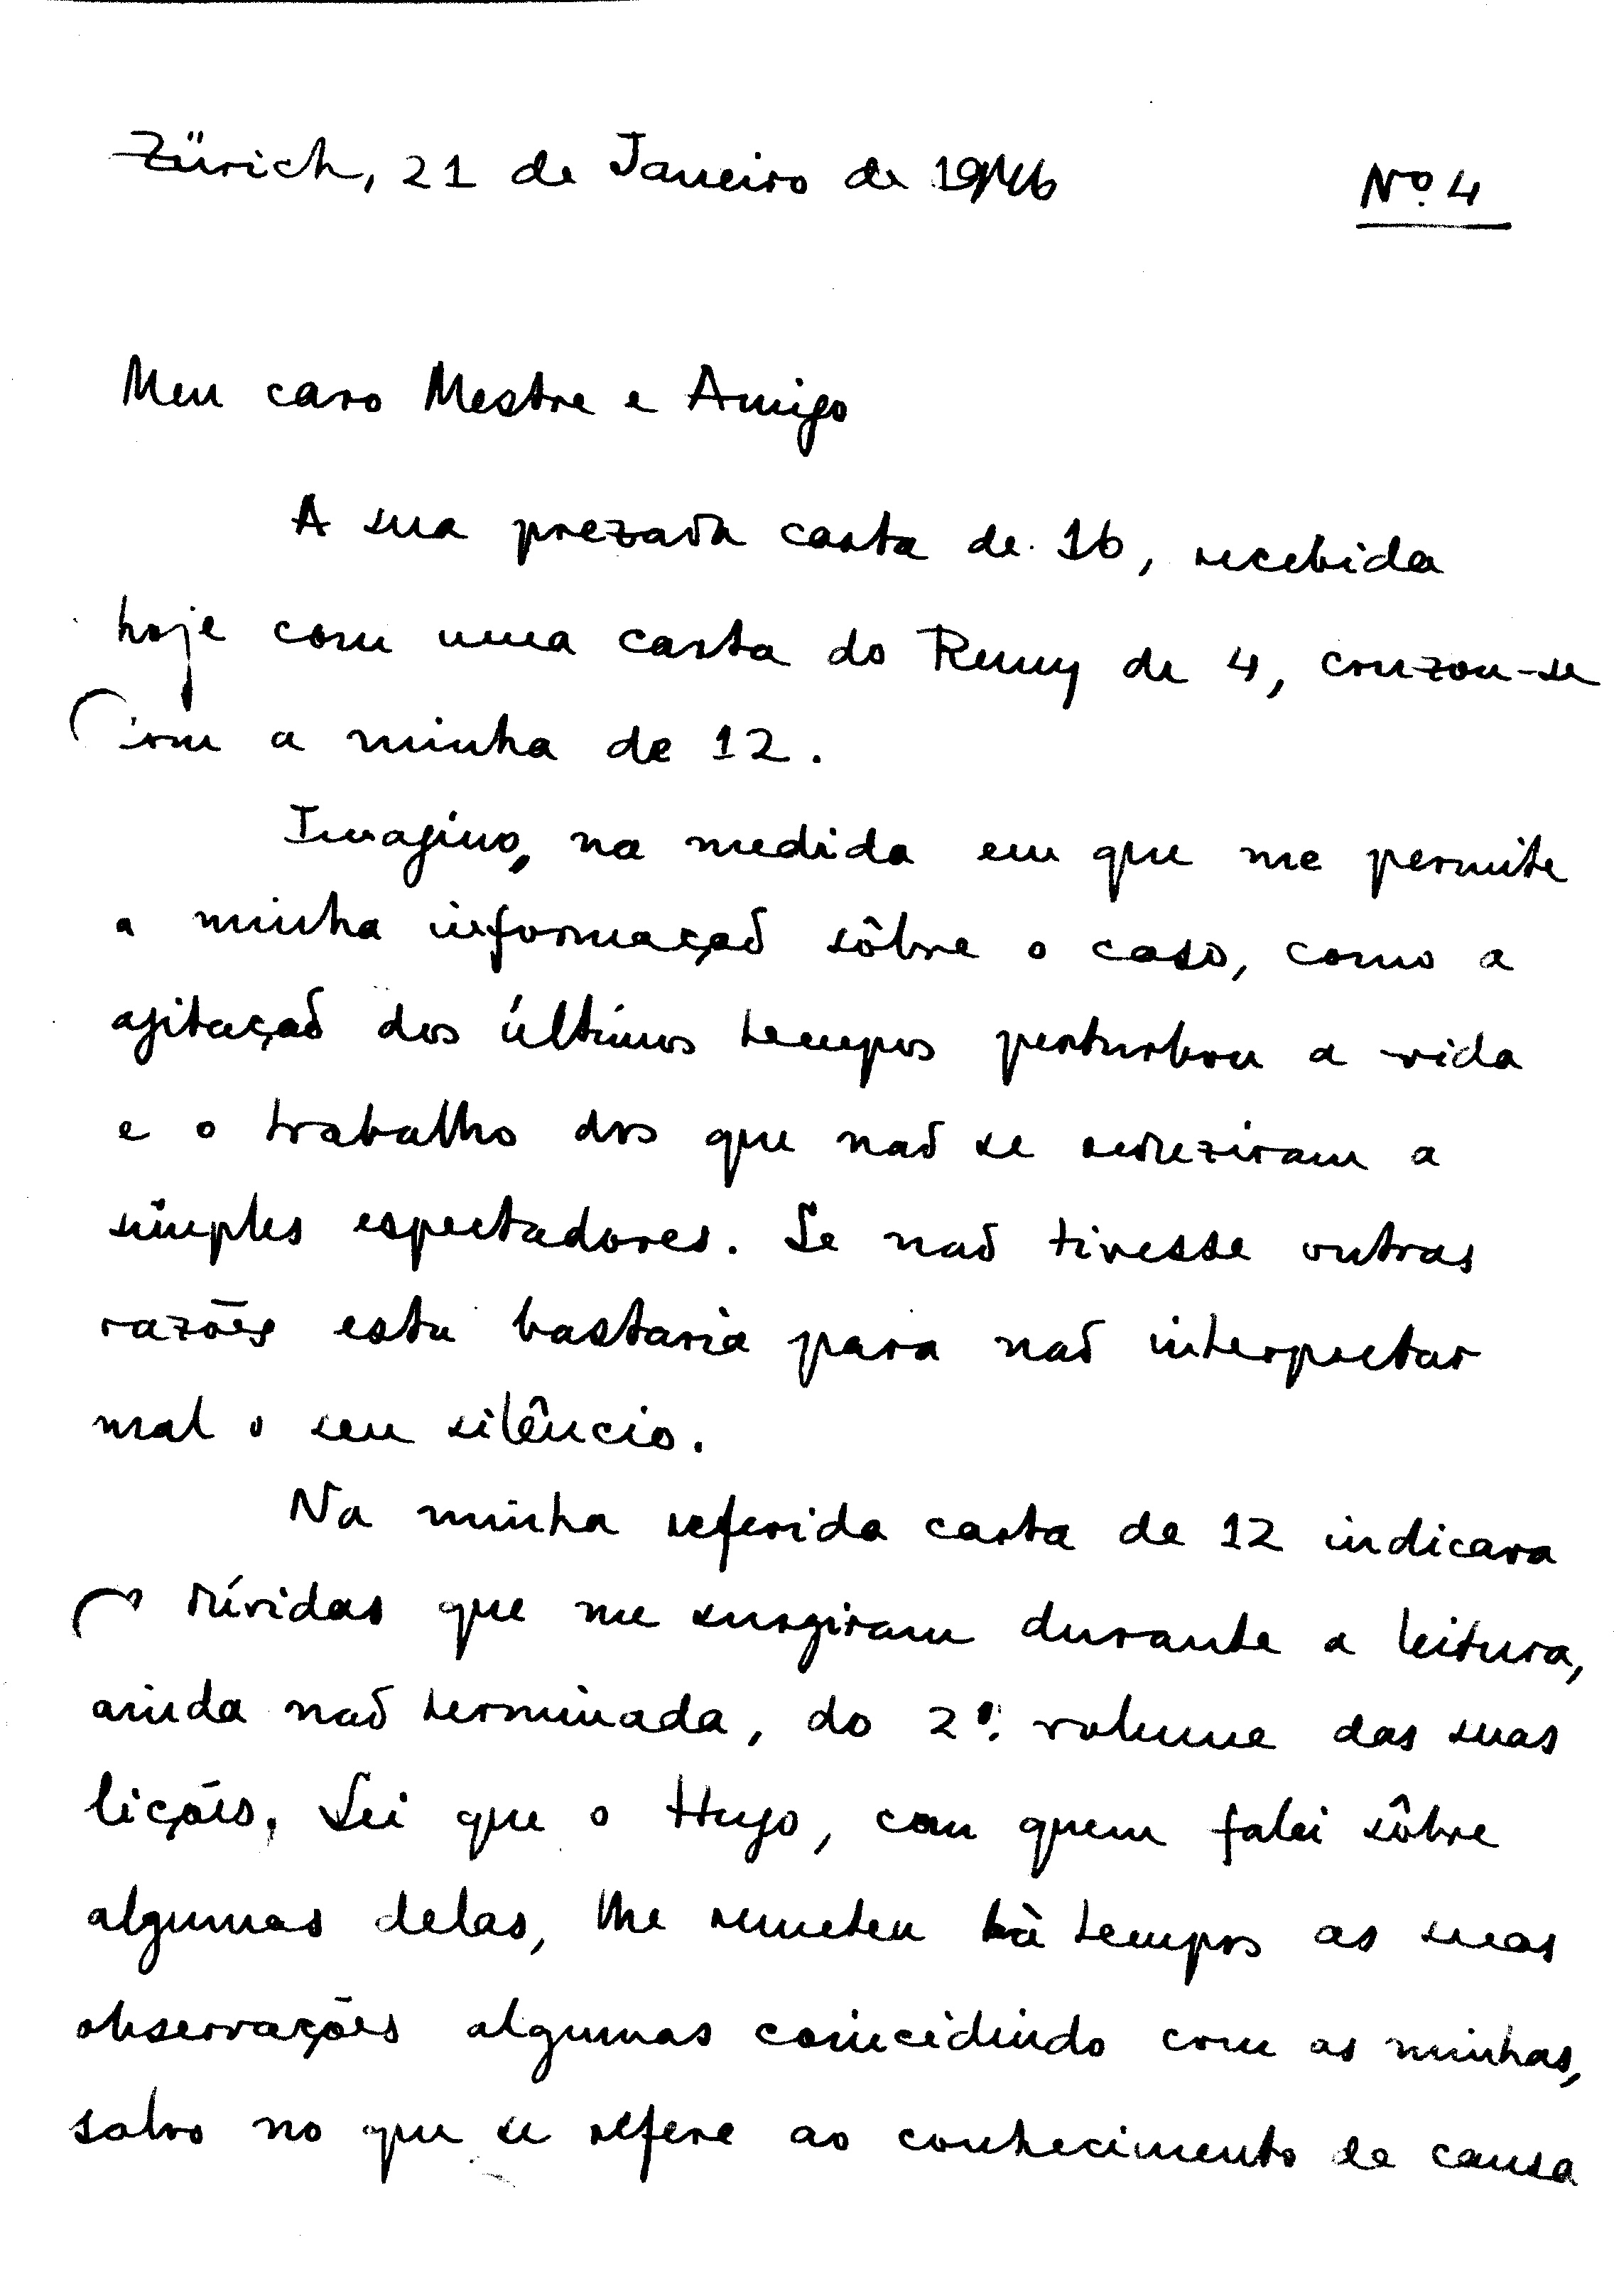 Zürich, 21 de Janeiro de 1946
Nº 4
Meu caro Mestre e Amigo
A sua prezada carta de 16, recebida
hoje com uma carta do Remy de 4, cruzou-se
com a minha de 12.
Imagino, na medida em que me permite
a minha informação sôbre o caso, como a
agitação dos últimos tempos perturbou a vida
e o trabalho dos que não se reduziram a
simples espectadores. Se não tivesse outras
razões esta bastaria para não interpretar
mal o seu silêncio.
Na minha referida carta de 12 indicara
dúvidas que me surgiram durante a leitura,
ainda não terminada, do 2º. volume das suas
lições. Sei que o Hugo, com quem falei sôbre
algumas delas, lhe remeteu hà tempos as suas
observações algumas coincidindo com as minhas,
salvo no que se refere ao conhecimento de causa